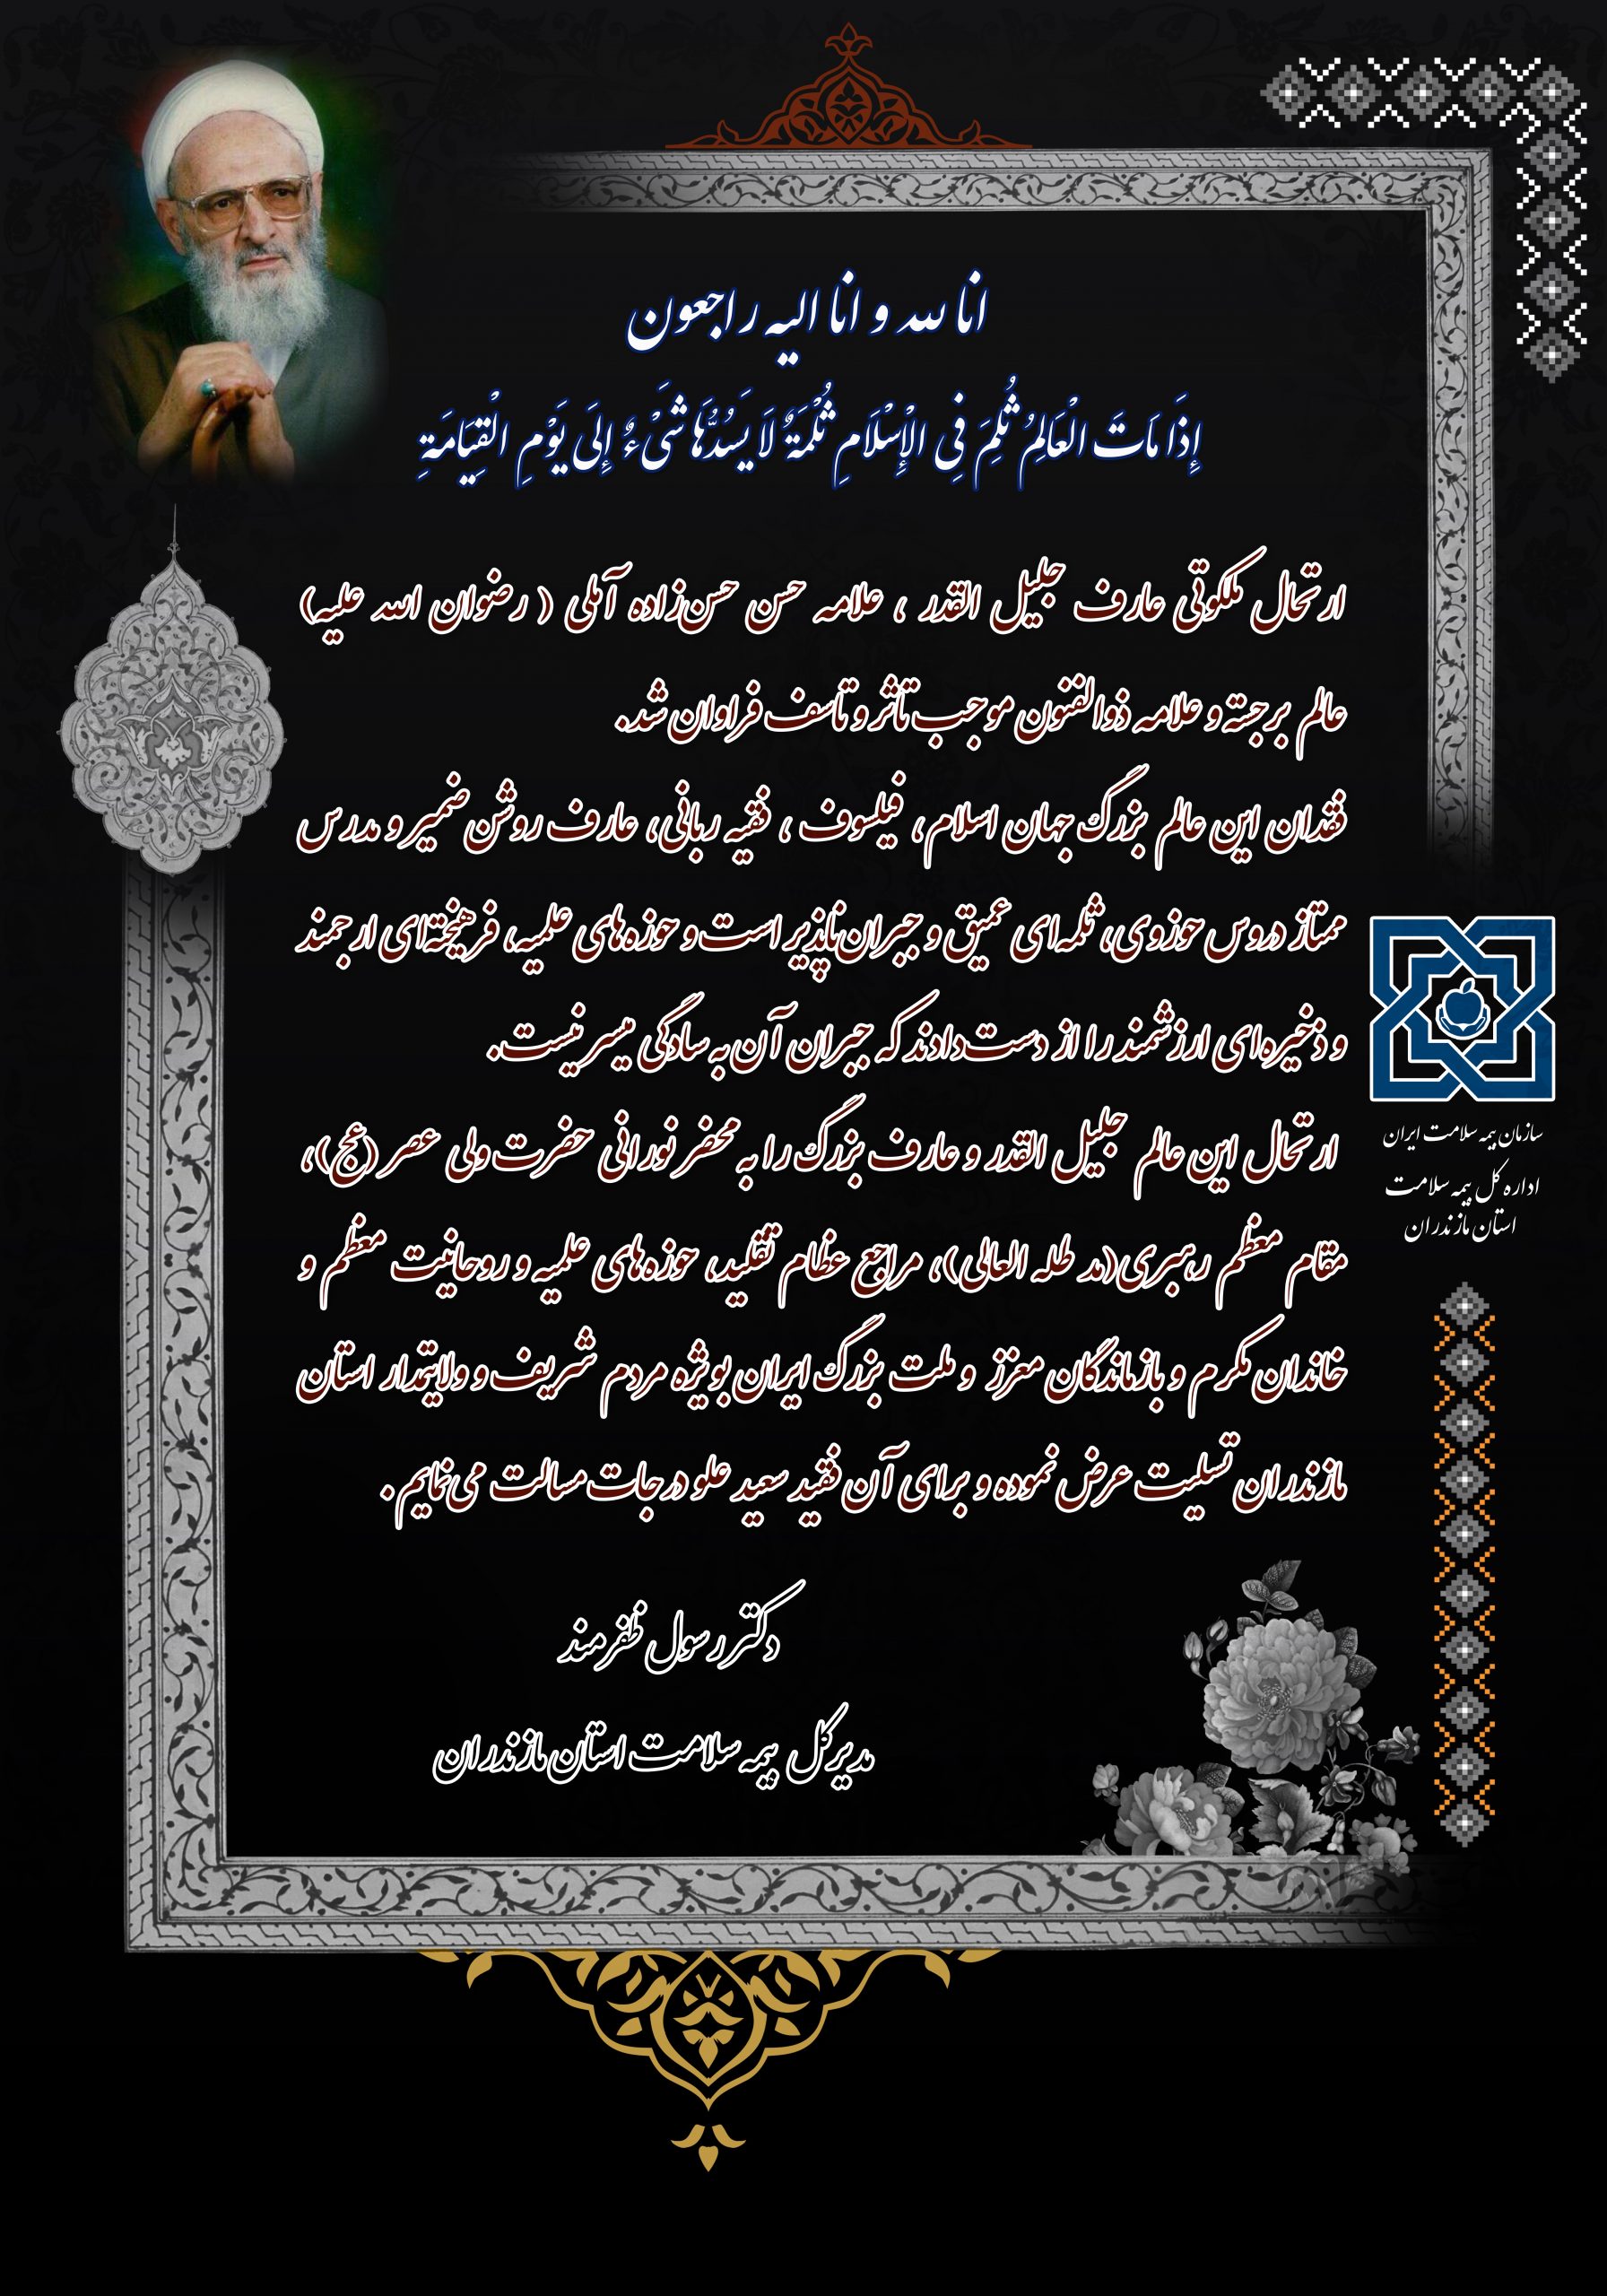 انا لله و انا الیه راجعون
إِذَا مَاتَ الْعَالِمُ ثُلِمَ فِی الْإِسْلَامِ ثُلْمَةٌ لَا یَسُدُّهَا شَیْءٌ إِلَی یَوْمِ الْقِیَامَةِ
ارتحال ملکوتی عارف جلیل القدر ، علامه حسن حسن‌زاده آملی ( رضوان الله علیه)
عالم برجسته و علامه ذوالفنون موجب تأثر و تاسف فراوان شد.
فقدان این عالم بزرگ جهان اسلام، فیلسوف ، فقیه ربانی، عارف روشن ضمیر و مدرس
ممتاز دروس حوزوی، ثلمه‌ای عمیق و جبران‌ناپذیر است و حوزه های علمیه، فرهیخته‌ای ارجمند
و ذخیره‌ای ارزشمند را از دست‌دادند که جبران آن به سادگی میسر نیست.
ارتحال این عالم جلیل القدر و عارف بزرگ را به محضر نورانی حضرت ولی عصر (عج)،
مقام معظم رهبری(مد ظله العالی)، مراجع عظام تقلید، حوزه های علمیه و روحانیت معظم و
خاندان مکرم و بازماندگان معزز و ملت بزرگ ایران بویژه مردم شریف و ولایتمدار استان
مازندران تسلیت عرض نموده و برای آن فقید سعید علو درجات مسالت می‌نمایم .
دکتر رسول ظفرمند
مدیرکل بیمه سلامت استان مازندران
سازمان بیمه سلامت ایران
اداره کل بیمه سلامت
استان مازندران